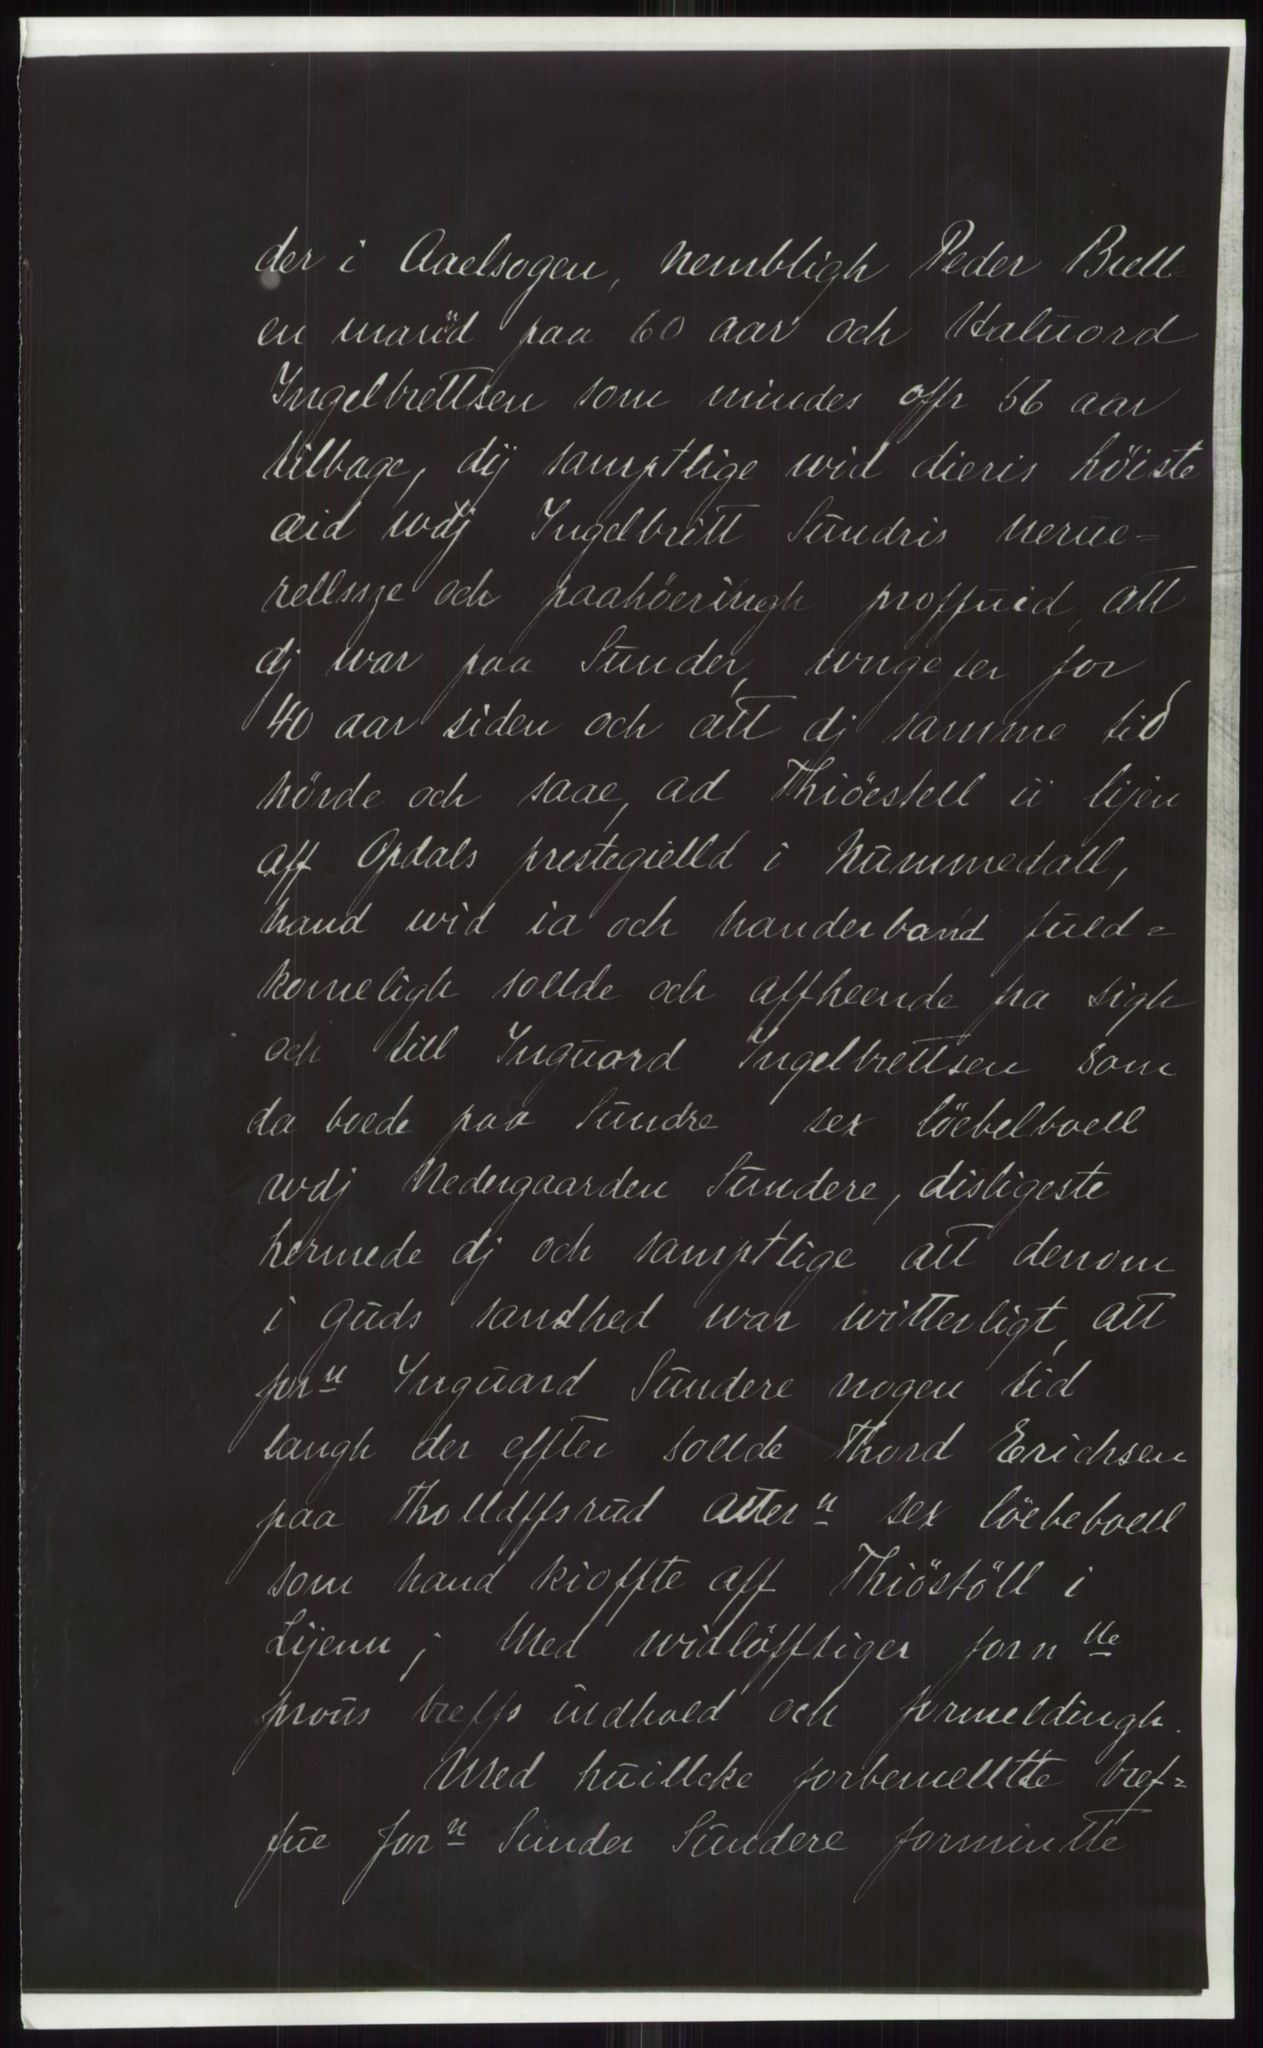 der i Aaelsogen, nembligh Peder Brelle
en mand paa 60 aar och Haluord
Ingelbrettsen som mindes offr 56 aar
tilbage, dij samptlige wid dieris höiste
æid wdj Ingelbritt Sundris nerue-
rellssze och paahöeringh proffuid, att
dj war paa Sunder, wngefer for
40 aar siden och att dj samme tid
hörde och saae, ad Thiöestell ii lijen
aff Opdals prestegielld i Nummedall,
hand wid ia och handerband fuld-
komeligh sollde och affheende fra sigh
och till Inguord Ingelbrettsen som
da boede paa Sundre sex löebelboell
wdj Nedergaarden Sundere, disligeste
hermede dj och samptlige att dennom
i guds sandhed war witterligt, att
forn Inguard Sundere nogen tid
langh der effter sollde Thord Erichsen
paa Tholldffsrud atter n sex löebeboell
som hand kioffte aff Thiöstöll i
Lijenn; Med widlöfftiger forn lle
prous breffs indhold och formeldingh.
Med huillcke forbemellte bref-
fue forn Sunder Sundere formintte